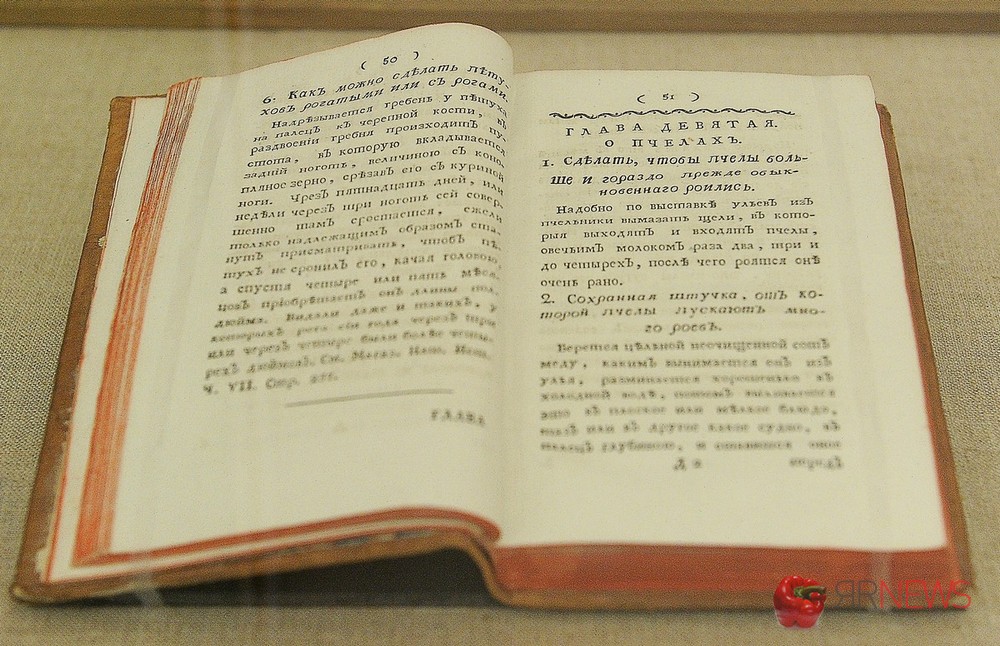 ( 50 )
6. Какъ можно сдѣлать пѣту-
ховъ рогатыми или съ рогами.
Надрѣзывается гребень у пѣтуха
на палецъ къ черепной кости, въ
раздвоеніи гребня происходитъ пу-
стота, въ которую вкладывается
задній ноготь, величиною съ коно-
пляное зерно, срѣзавъ его съ куриной
ноги. Чрезъ пятнадцать дней, или
недѣли черезъ три ноготь сей совер-
шенно тамъ сростается, ежели
только надлежащимъ образомъ ста-
нутъ присматривать, чтобъ пѣ-
тухъ не сронилъ его, качая головою,
а спустя четыре или пять мѣся-
цовъ пріобрѣтаетъ онъ длины пол-
дюйма. Видали даже и такихъ, у
которыхъ рога въ года черезъ три
или черезъ четыре были болѣе четы-
рехъ дюймовъ. См. Магаз. Нат. Ист.
Ч. VII. Стр.
ГЛАВА
( 51 )
ГЛАВА ДЕВЯТАЯ.
О ПЧЕЛАХЪ.
1. Сдѣлать, чтобы пчелы боль-
ше и гораздо прежде обык-
новеннаго роились.
Надобно по выставкѣ ульевъ изъ
пчельники вымазать щели, въ кото-
рыя выходятъ и входятъ пчелы,
овечьимъ молокомъ раза два, три и
до четырехъ, послѣ чего роятся онѣ
очень рано.
2. Сохранная штучка, отъ ко-
торой пчелы пускаютъ мно-
го роевъ.
Берется цѣльной неочищенной сотъ
меду, какимъ вынимается онъ изъ
улья, разминается хорошенько въ
холодной водѣ, потомъ выливается
это въ плоское или мѣлкое блюдо,
или въ другое какое судно, въ
палецъ глубиною, и ставится оное
Д 2
RRNEWS